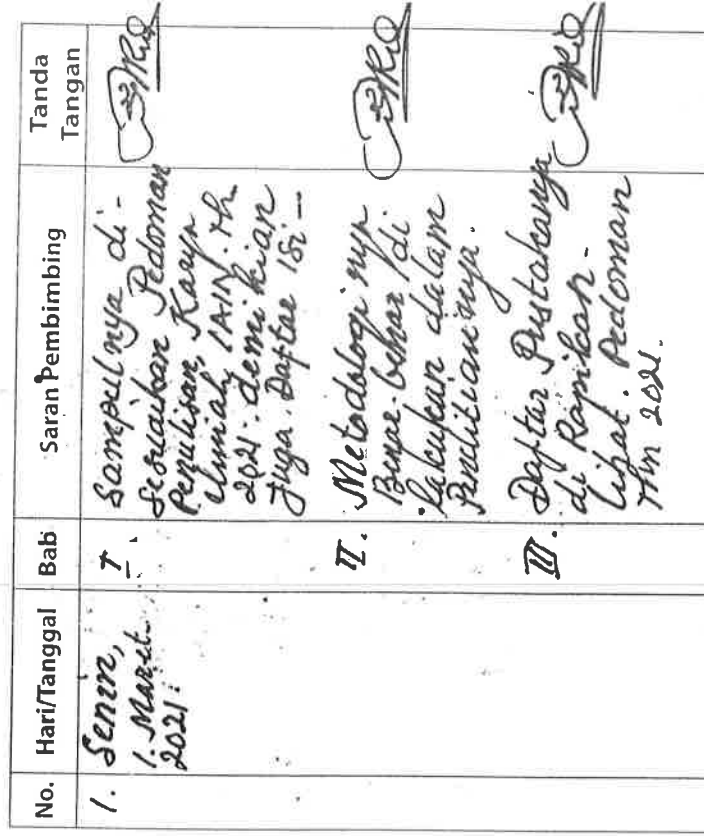 No. Hari/Tanggal Bab Saran Pembimbing Tanda Tangan
1. Senin,
1. Maret
2021.
I. Sampulnya di-
sesuaikan Pedoman
Penulisan, Karya
Ilmiah, IAIN. th
2021. demikian
juga. Daftar Isi -
II. Metodologi nya
Benar-behar di
lakukan dalam
Penelitiannya.
III. Daftar Pustakanya
di Rapikan -
Lihat. Pedoman
2021.